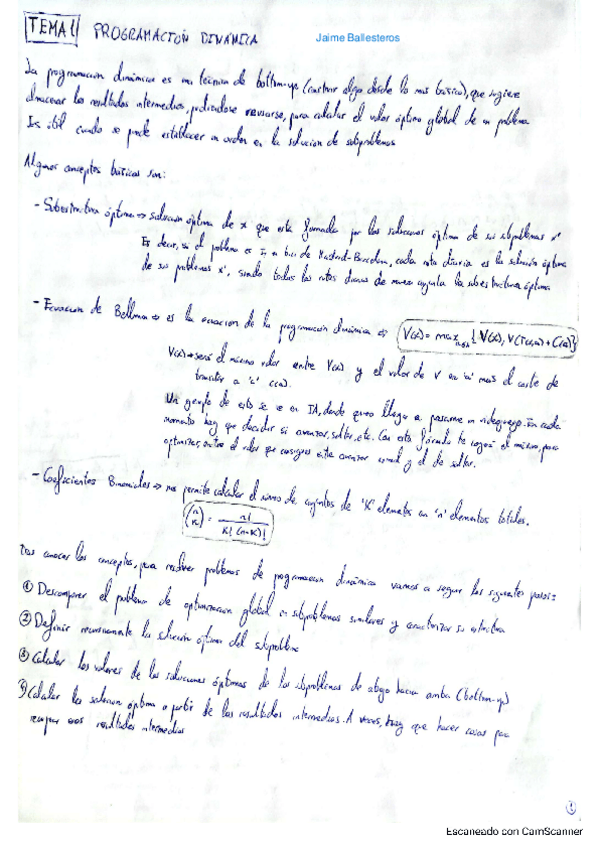 TEMA 1 PROGRAMACION DINAMICA Jaime Ballesteros
La programacion dinamica es una tecnica de bottom-up (construir algo desde lo mas basico), que sugiere
almacenar los resultados intermedios, pudiendose reusarse, para calcular el valor óptimo global de un problema
Es útil cuando se puede establecer un orden en la solucion de subproblemas
Algunos conceptos básicos son:
- Subestructura óptima => solucion óptima de x que esta formada por las soluciones óptima de sus subproblemas x'
Es decir, si el problema es ir a Madrid-Barcelona, cada ruta es la solución óptima
de su problemas x', siendo todas las rutas de nuevo la subestructura óptima
- Ecuacion de Bellman => es la ecuacion de la programación dinámica =>
V(x) => será el máximo valor entre V(x) y el valor de V en 'a' mas el coste de
transitar a 'a' C(a).
Un ejemplo de esto se ve en IA, donde a pasarme un videojuego. En cada
momento hay que decidir si avanzar, saltar, etc. Con esta fórmula te el máximo, para
optimizar, entre el valor que consigues entre avanzar y el de saltar.
- Coeficientes Binomiales => nos permite calcular el numero de conjuntos de 'K' elementos en 'n' elementos totales.
(n K) = n! / K! (n-K)!
Tras conocer los conceptos, para resolver problemas de programacion dinamica vamos a seguir los siguientes pasos:
① Descomponer el problema de optimizacion global en subproblemas similares y caracterizar su estructura
② Definir recursivamente la solucion óptima del subproblema
③ Calcular los valores de las soluciones óptimas de los subproblemas de abajo hacia arriba (bottom-up)
④ Calcular la solucion óptima a partir de los resultados intermedios. A veces, hay que hacer cosas para
esos resultados intermedios
1
Escaneado con CamScanner